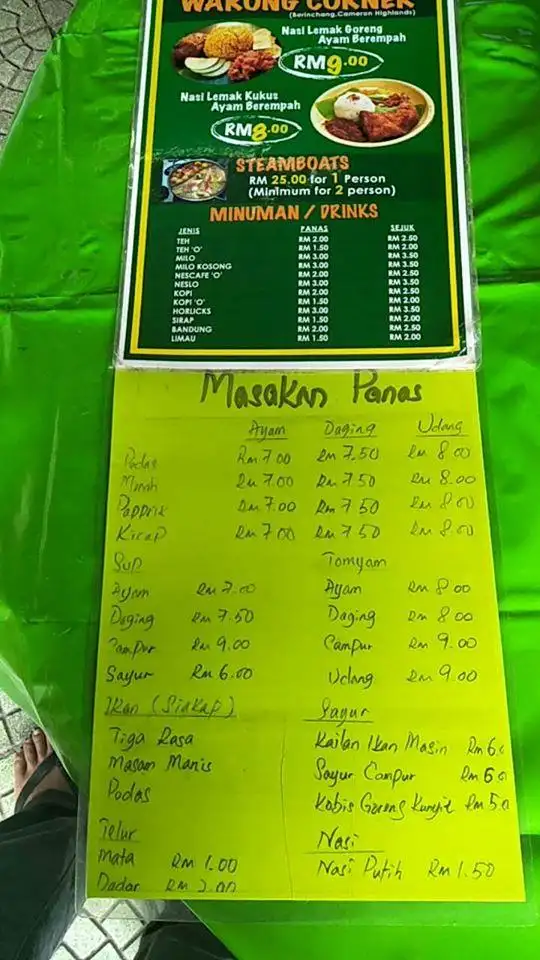 WARUNG CORNER
(Berinchang,Cameron Highlands)
Nasi Lemak Goreng
Ayam Berempah
RM9.00
Nasi Lemak Kukus
Ayam Berempah
RM8.00
STEAMBOATS
RM 25.00 for 1 Person
(Minimum for 2 person)
MINUMAN / DRINKS
JENIS PANAS SEJUK
TEH RM 2.00 RM 2.50
TEH 'O' RM 1.50 RM 2.00
MILO RM 3.00 RM 3.50
MILO KOSONG RM 3.00 RM 3.50
NESCAFE 'O' RM 2.00 RM 2.50
NESLO RM 3.00 RM 3.50
KOPI RM 2.00 RM 2.50
KOPI 'O' RM 1.50 RM 2.00
HORLICKS RM 3.00 RM 3.50
SIRAP RM 1.50 RM 2.00
BANDUNG RM 2.00 RM 2.50
LIMAU RM 1.50 RM 2.00
Masakan Panas
Ayam Daging Udang
Pedas Rm 7.00 Rm 7.50 Rm 8.00
Merah Rm 7.00 Rm 7.50 Rm 8.00
Papprik Rm 7.00 Rm 7.50 Rm 8.00
Kicap Rm 7.00 Rm 7.50 Rm 8.00
Sup Tomyam
Ayam Rm 7.00 Ayam Rm 8.00
Daging Rm 7.50 Daging Rm 8.00
Campur Rm 9.00 Campur Rm 9.00
Sayur Rm 6.00 Udang Rm 9.00
Ikan (Siakap) Sayur
Tiga Rasa Kailan Ikan Masin Rm 6.0
Masam Manis Sayur Campur Rm 6.0
Pedas Kobis Goreng Kunyit Rm 5.0
Telur Nasi
Mata Rm 1.00 Nasi Putih Rm 1.50
Dadar Rm 2.00